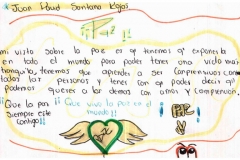 Juan David Santana Rojas
PAZ !!
mi visto sobre la paz es q tenemos q exponerla
en todo el mundo para poder tener una vida mas
tranquila, tenemos que aprender a ser comprensivos con
todas las personas y tener con q poder decir q
podemos querer a los demas con amor y comprensión.
Que la paz
siempre este
contigo!!
¡¡Que viva la paz en el
mundo!!
¡¡PAZ!!